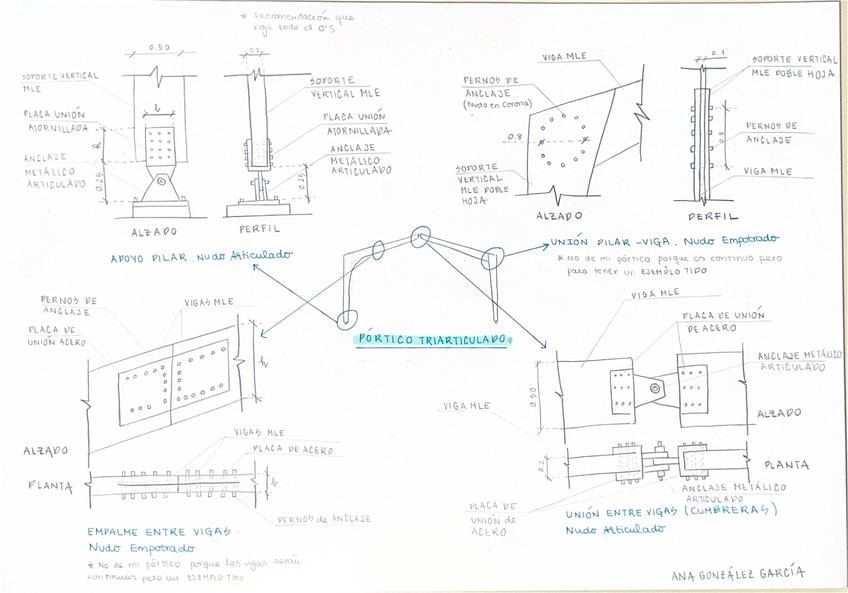 * recomendación que
coja todo el 0'5
0.50
SOPORTE VERTICAL
MLE
b
PLACA UNIÓN
ATORNILLADA
h
ANCLAJE
METÁLICO
ARTICULADO
0.25
ALZADO
0.2
SOPORTE
VERTICAL MLE
PLACA UNIÓN
ATORNILLADA
ANCLAJE
METÁLICO
ARTICULADO
0.25
PERFIL
APOYO PILAR. Nudo Articulado
VIGA MLE
PERNOS DE
ANCLAJE
(Nudo en corona)
0.8
SOPORTE
VERTICAL
MLE DOBLE
HOJA
ALZADO
0.1
SOPORTE VERTICAL
MLE DOBLE HOJA
PERNOS DE
ANCLAJE
0.8
VIGA MLE
PERFIL
UNIÓN PILAR - VIGA. Nudo Empotrado
* No de mi pórtico porque es continuo pero
para tener un EJEMPLO TIPO
PÓRTICO TRIARTICULADO
PERNOS DE
ANCLAJE
VIGAS MLE
PLACA DE
UNIÓN ACERO
h
ALZADO
VIGAS MLE
PLACA DE ACERO
PLANTA
b
PERNOS de ANCLAJE
EMPALME ENTRE VIGAS.
Nudo Empotrado
* No de mi pórtico porque las vigas serán
continuas pero un EJEMPLO TIPO
VIGA MLE
PLACA DE UNIÓN
DE ACERO
ANCLAJE METÁLICO
ARTICULADO
0.50
VIGA MLE
ALZADO
0.2
PLANTA
PLACA DE
UNIÓN de
ACERO
ANCLAJE METÁLICO
ARTICULADO
UNIÓN ENTRE VIGAS (CUMBRERAS)
Nudo Articulado
ANA GONZÁLEZ GARCÍA